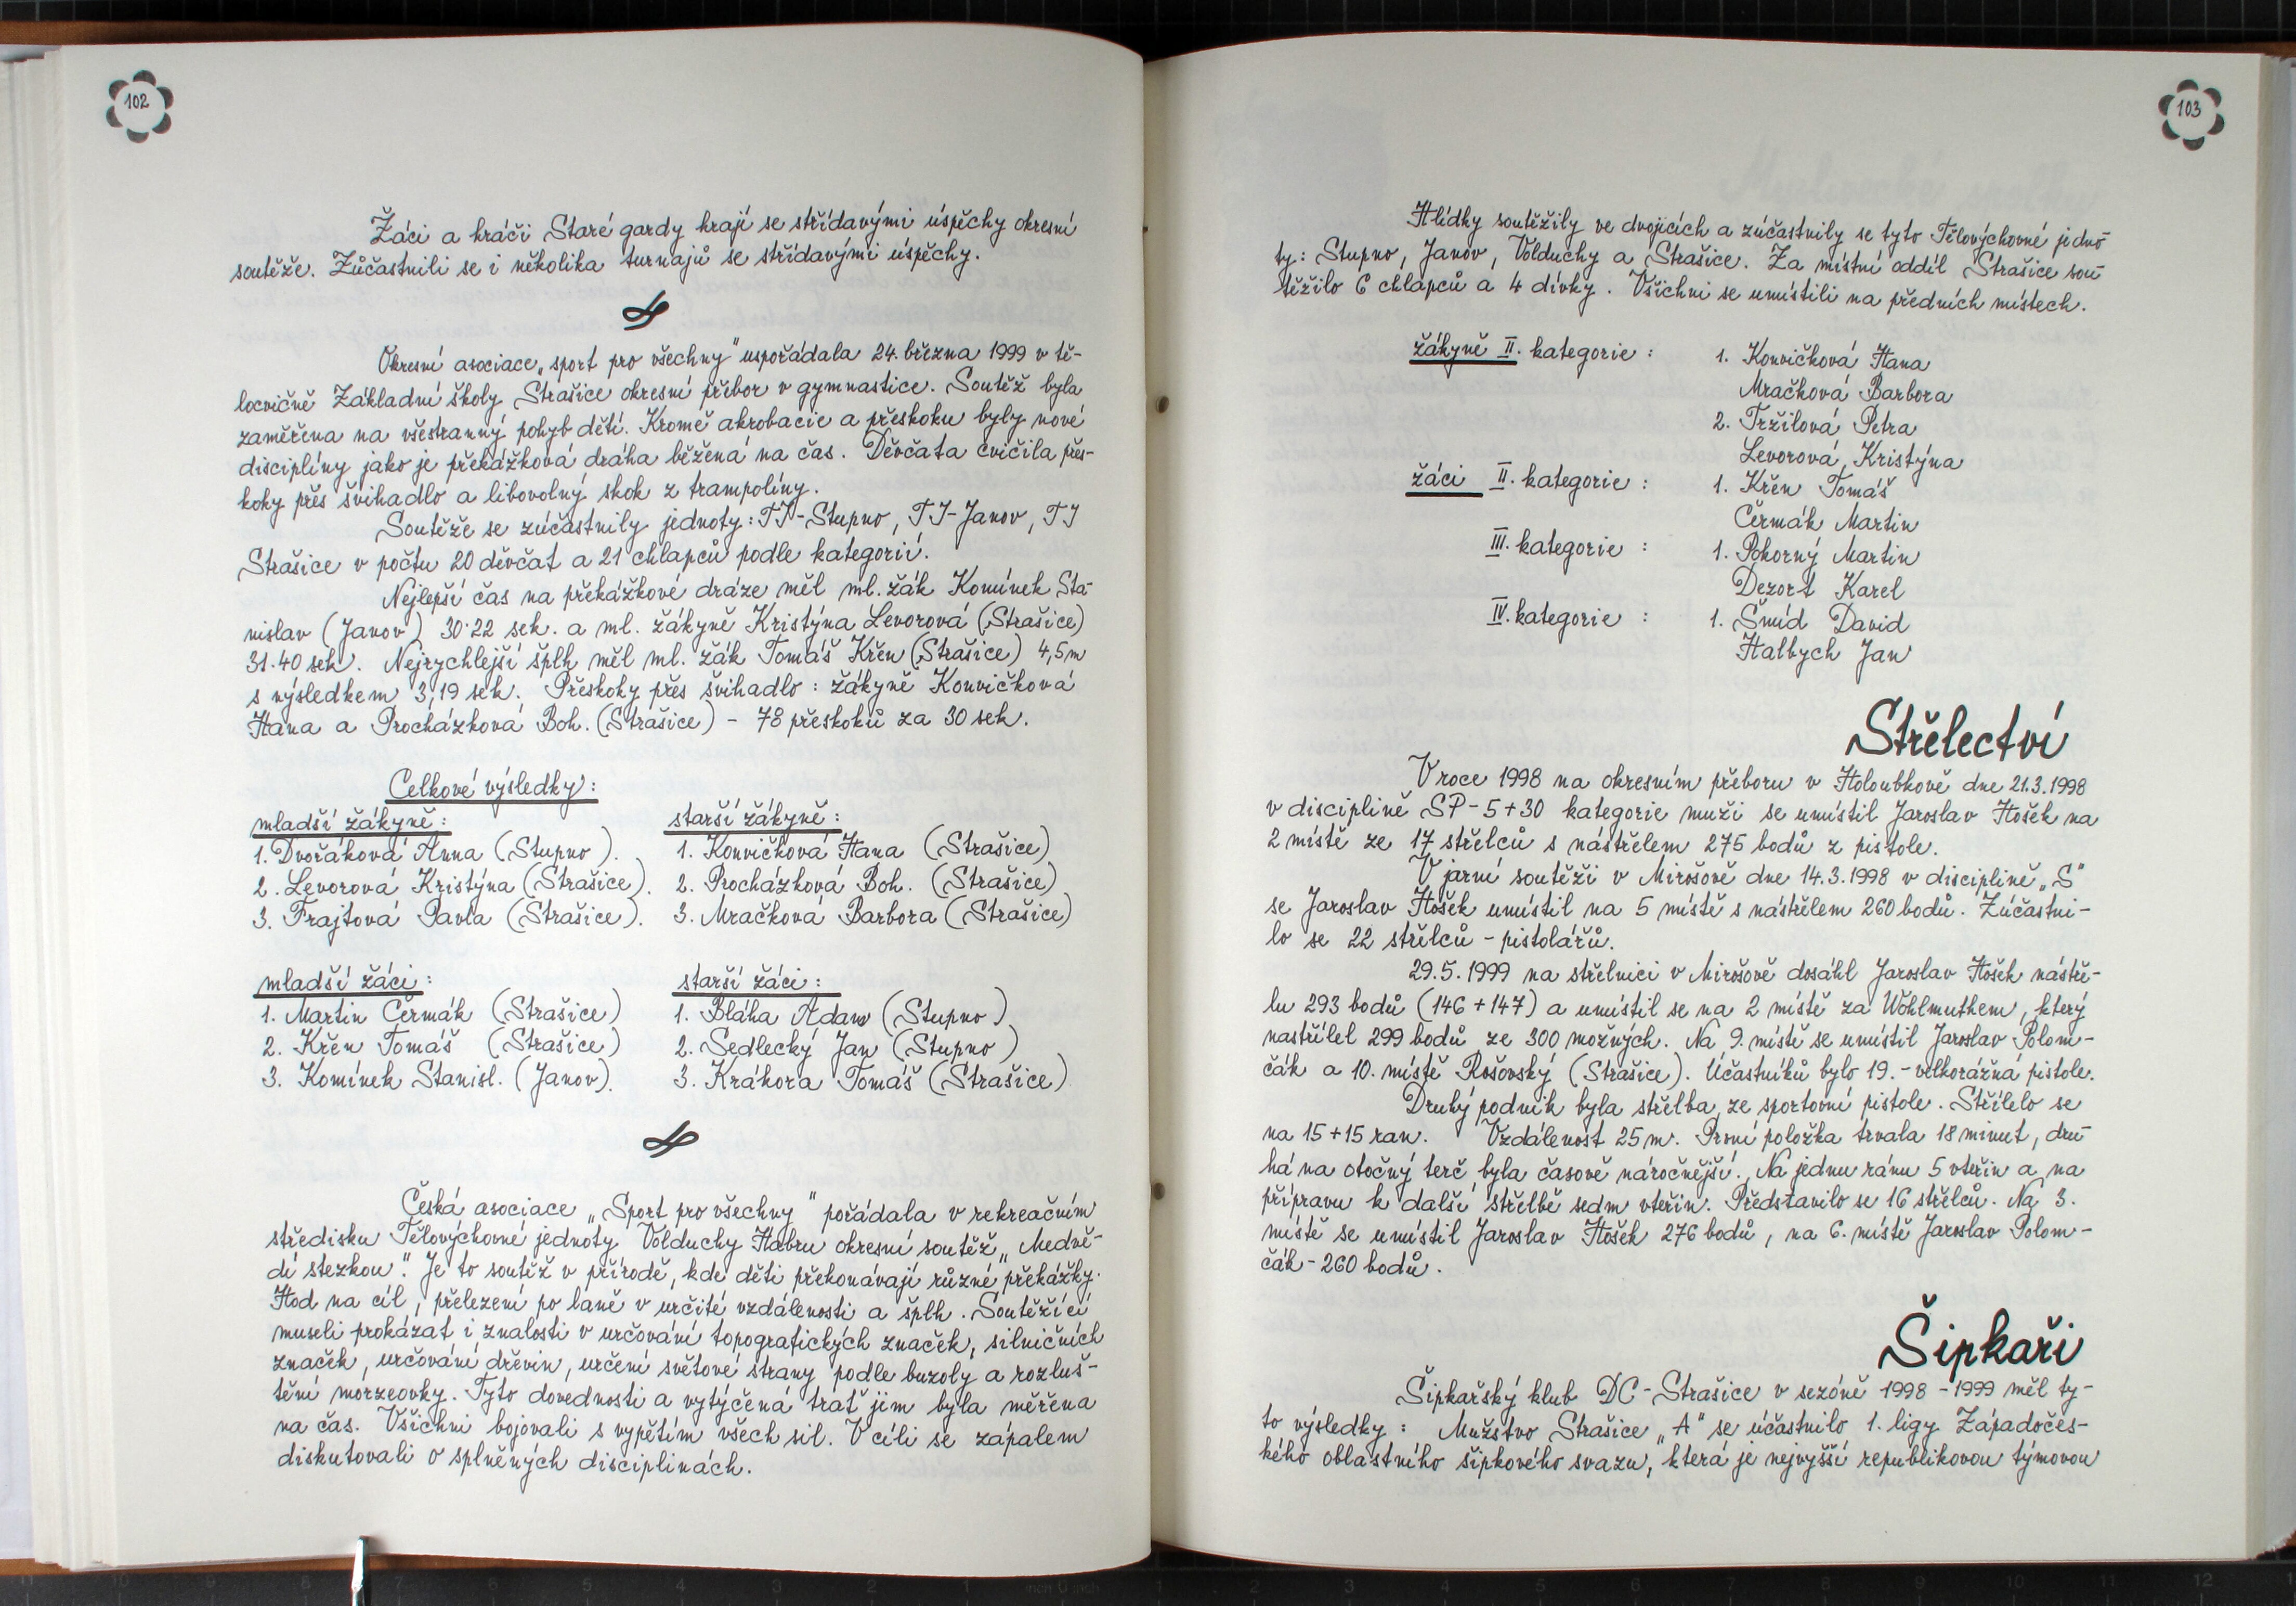 102
Žáci a hráči Staré gardy hrají se střídavými úspěchy okresní
soutěže. Zůčastnili se i několika turnajů se střídavými úspěchy.
Okresní asociace „sport pro všechny" uspořádala 24. března 1999 v tě-
locvičně Základní školy Strašice okresní přebor v gymnastice. Soutěž byla
zaměřena na všestranný pohyb dětí. Kromě akrobacie a přeskoku byly nové
disciplíny jako je překážková dráha běžená na čas. Děvčata cvičila přes-
koky přes švihadlo a libovolný skok z trampolíny.
Soutěže se zúčastnily jednoty: TJ-Stupno, TJ-Janov, TJ
Strašice v počtu 20 děvčat a 21 chlapců podle kategorií.
Nejlepší čas na překážkové dráze měl ml. žák Komínek Sta-
nislav (Janov) 30·22 sek. a ml. žákyně Kristýna Levorová (Strašice)
31·40 sek. Nejrychlejší šplh měl ml. žák Tomáš Křen (Strašice) 4,5m
s výsledkem 3,19 sek. Přeskoky přes švihadlo: žákyně Konvičková
Hana a Procházková Boh. (Strašice) - 78 přeskoků za 30 sek.
Celkové výsledky:
mladší žákyně:
1. Dvořáková Anna (Stupno).
2. Levorová Kristýna (Strašice).
3. Frajtová Pavla (Strašice).
starší žákyně:
1. Konvičková Hana (Strašice)
2. Procházková Boh. (Strašice)
3. Mračková Barbora (Strašice)
mladší žáci:
1. Martin Čermák (Strašice)
2. Křen Tomáš (Strašice)
3. Komínek Stanisl. (Janov).
starší žáci:
1. Bláha Adam (Stupno)
2. Sedlecký Jan (Stupno)
3. Krákora Tomáš (Strašice)
Česká asociace „Sport pro všechny" pořádala v rekreačním
středisku Tělovýchovné jednoty Volduchy Habru okresní soutěž „Medvě-
dí stezkou". Je to soutěž v přírodě, kde děti překonávají různé překážky.
Hod na cíl, přelezení po laně v určité vzdálenosti a šplh. Soutěžící
museli prokázat i znalosti v určování topografických značek, silničních
značek, určování dřevin, určení světové strany podle buzoly a rozluš-
tění morzeovky. Tyto dovednosti a vytýčená trať jem byla měřena
na čas. Všichni bojovali s vypětím všech sil. V cíli se zápalem
diskutovali o splněných disciplinách.
103
Hlídky soutěžily ve dvojicích a zúčastnily se tyto Tělovýchovné jedno-
ty: Stupno, Janov, Volduchy a Strašice. Za místní oddíl Strašice sou-
těžilo 6 chlapců a 4 dívky. Všichni se umístili na předních místech.
žákyně II. kategorie: 1. Konvičková Hana
Mračková Barbora
2. Tržilová Petra
Levorová Kristýna
žáci II. kategorie: 1. Křen Tomáš
Čermák Martin
III. kategorie: 1. Pokorný Martin
Dezort Karel
IV. kategorie: 1. Šmíd David
Halbych Jan
Střelectví
V roce 1998 na okresním přeboru v Holoubkově dne 21.3.1998
v disciplině SP-5+30 kategorie muži se umístil Jaroslav Hošek na
2 místě ze 17 střelců s nástřelem 275 bodů z pistole.
V jarní soutěži v Mirošově dne 14.3.1998 v disciplině „S"
se Jaroslav Hošek umístil na 5 místě s nástřelem 260 bodů. Zúčastni-
lo se 22 střelců - pistolářů.
29.5.1999 na střelnici v Mirošově dosáhl Jaroslav Hošek nástře-
lu 293 bodů (146+147) a umístil se na 2 místě za Wohlmuthem, který
nastřílel 299 bodů ze 300 možných. Na 9. místě se umístil Jaroslav Polom-
čák a 10. místě Rošovský (Strašice). Účastníků bylo 19. - velkorážná pistole.
Druhý podnik byla střelba ze sportovní pistole. Střílelo se
na 15+15 ran. Vzdálenost 25 m. První položka trvala 18 minut, dru-
há na otočný terč byla časově náročnější. Na jednu ránu 5 vteřin a na
přípravu k další střelbě sedm vteřin. Představilo se 16 střelců. Na 3.
místě se umístil Jaroslav Hošek 276 bodů, na 6. místě Jaroslav Polom-
čák - 260 bodů.
Šipkaři
Šipkařský klub DC-Strašice v sezóně 1998-1999 měl ty-
to výsledky: Mužstvo Strašice „A" se účastnilo 1. ligy Západočes-
kého oblastního šipkového svazu, která je nejvyšší republikovou týmovou